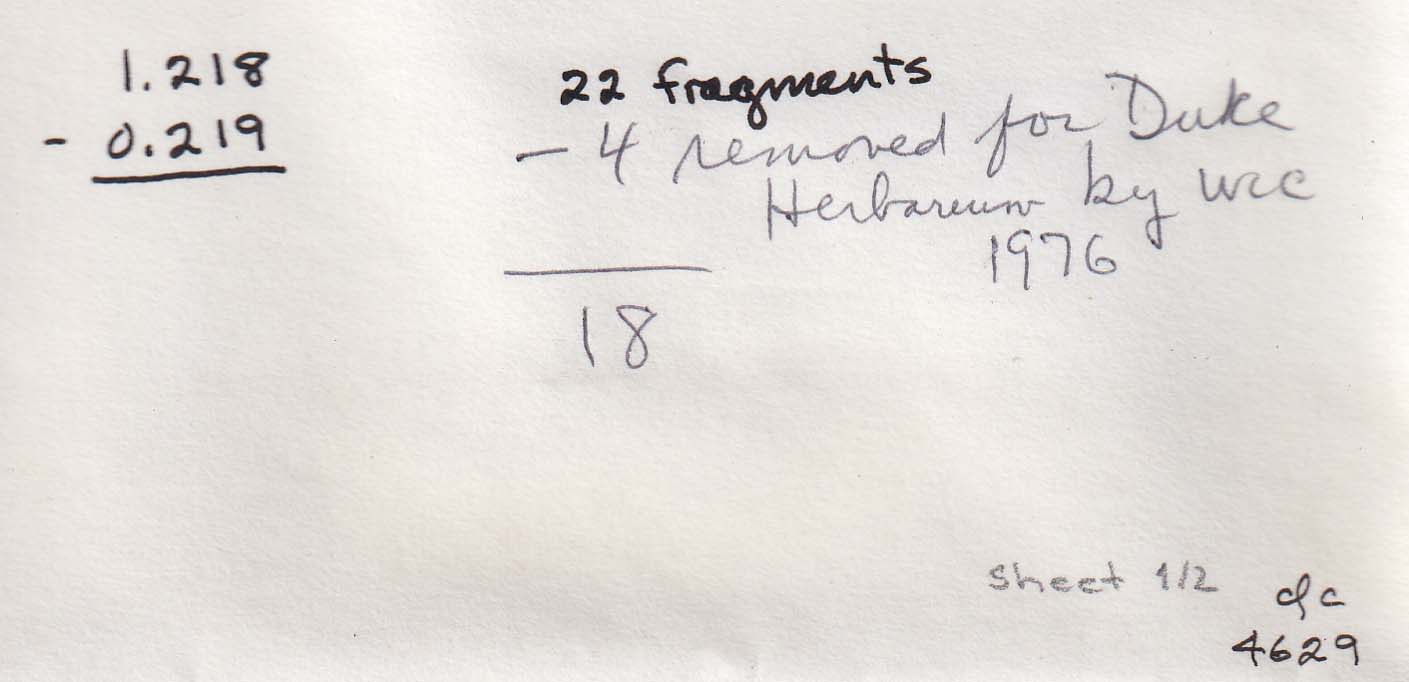 1.218
- 0.219
22 fragments
- 4 removed for Duke
Herbarium by WCC
1976
18
Sheet 1/2
4629